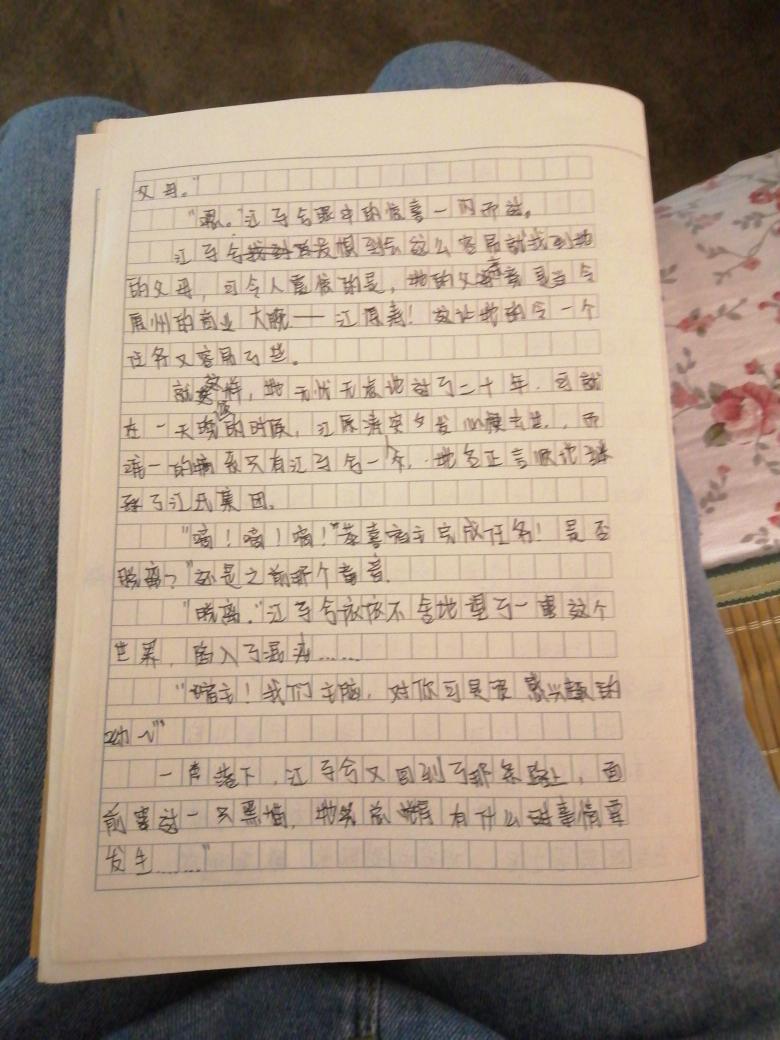 父母。"
"嗯。"江予兮眼中的惊喜一闪而过。
江予兮没想到会这么容易就找到她
的父母，可令人震惊的是，她的父亲是当今
州的商业大晚——江原寿！这让她的令一个
任务又容易了些。
就这样，她无忧无虑地过了二十年，可就
在一天晚的时候，江原清突发心梗去世，而
唯一的只有江予兮一个，她名正言顺地继
了江氏集团。
"嘀！嘀！嘀！"恭喜宿主完成任务！是否
脱离？"还是之前那个声音。
"脱离。"江予兮依依不舍地望了一这个
世界，陷入了混沌……
"宿主！我们主脑，对你可是感兴趣的
呦~"
一声落下，江予兮又回到了那条路上，面
前过一只黑猫，她总觉有什么事情要
发生……"